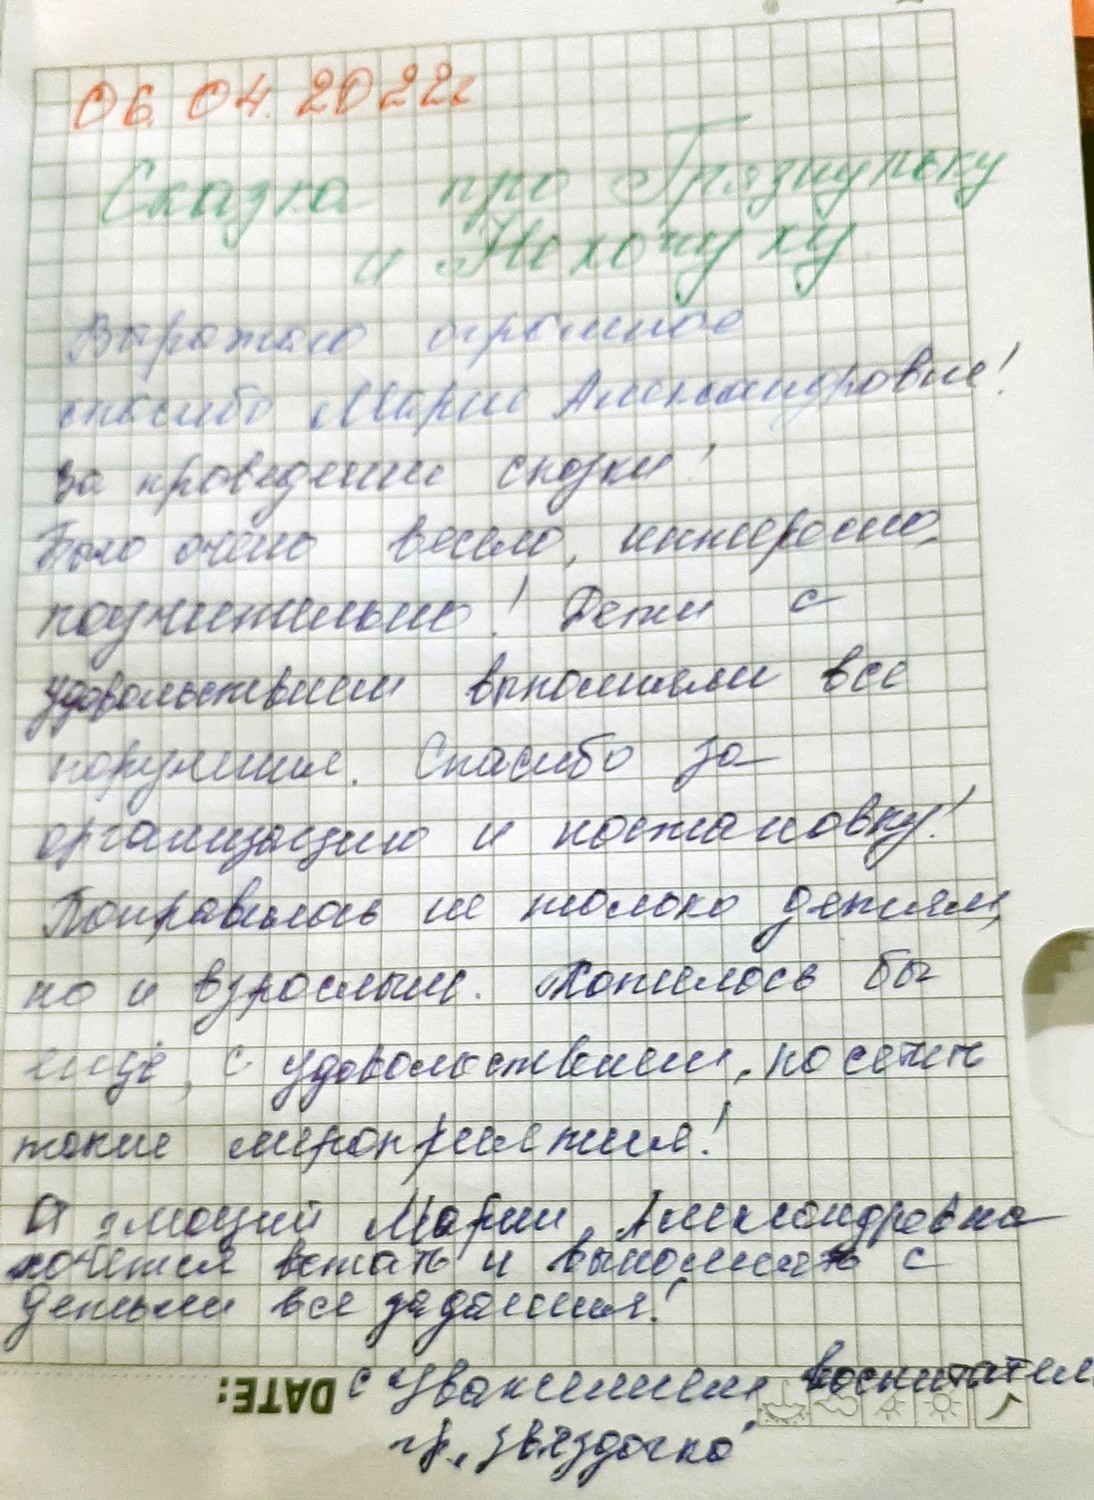 06.04.2022г
Сказка про Грязнульку
и Нехочуху
Выражаю огромное
спасибо Марие Александровне!
За проведении сказки!
Было очень весело, интересно,
поучительно! Дети с
удовольствием выполняли все
поручения. Спасибо за
организацию и постановку!
Понравилось не только детям,
но и взрослым. Хотелось бы
ещё, с удовольствием, посетить
такие мероприятия!
От эмоций Марии Александровна
хочется встать и выполнять с
детьми все задания!
с уважением воспитатели
гр. "Звёздочка"
DATE: